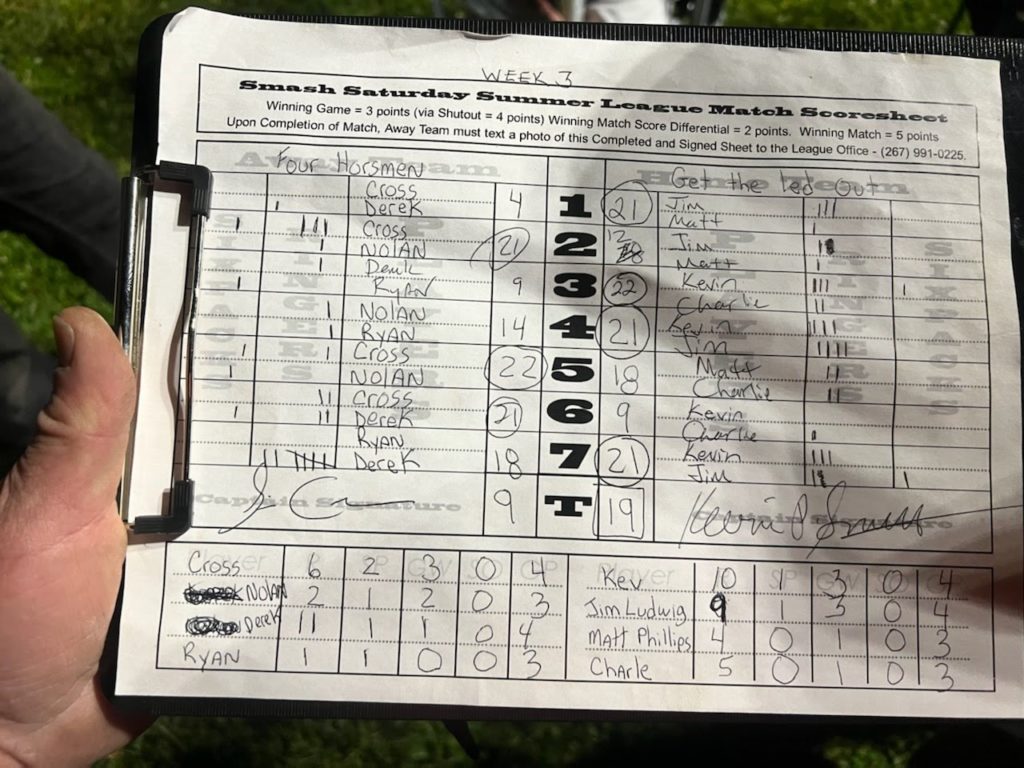 WEEK 3
Smash Saturday Summer League Match Scoresheet
Winning Game = 3 points (via Shutout = 4 points) Winning Match Score Differential = 2 points. Winning Match = 5 points
Upon Completion of Match, Away Team must text a photo of this Completed and Signed Sheet to the League Office - (267) 991-0225.
Four Horsmen Get the Led Out
Cross 4 1 21 Jim
Derek Matt
Cross 21 2 12 Jim
NOLAN Matt
Derek 9 3 22 Kevin
RYAN Charlie
NOLAN 14 4 21 Kevin
RYAN Jim
Cross 22 5 18 Matt
NOLAN Charlie
Cross 21 6 9 Kevin
Derek Charlie
RYAN 18 7 21 Kevin
Derek Jim
9 T 19
Captain Signature Captain Signature
Player SP GW SO GP Player SP GW SO GP
Cross 6 2 3 0 4 Kev 10 1 3 0 4
NOLAN 2 1 2 0 3 Jim Ludwig 9 1 3 0 4
Derek 11 1 1 0 4 Matt Phillips 4 0 1 0 3
RYAN 1 1 0 0 3 Charle 5 0 1 0 3